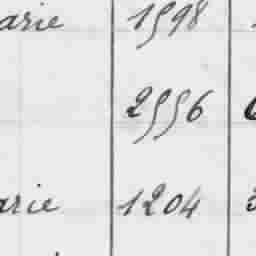 arie 1598
2556
arie 1204